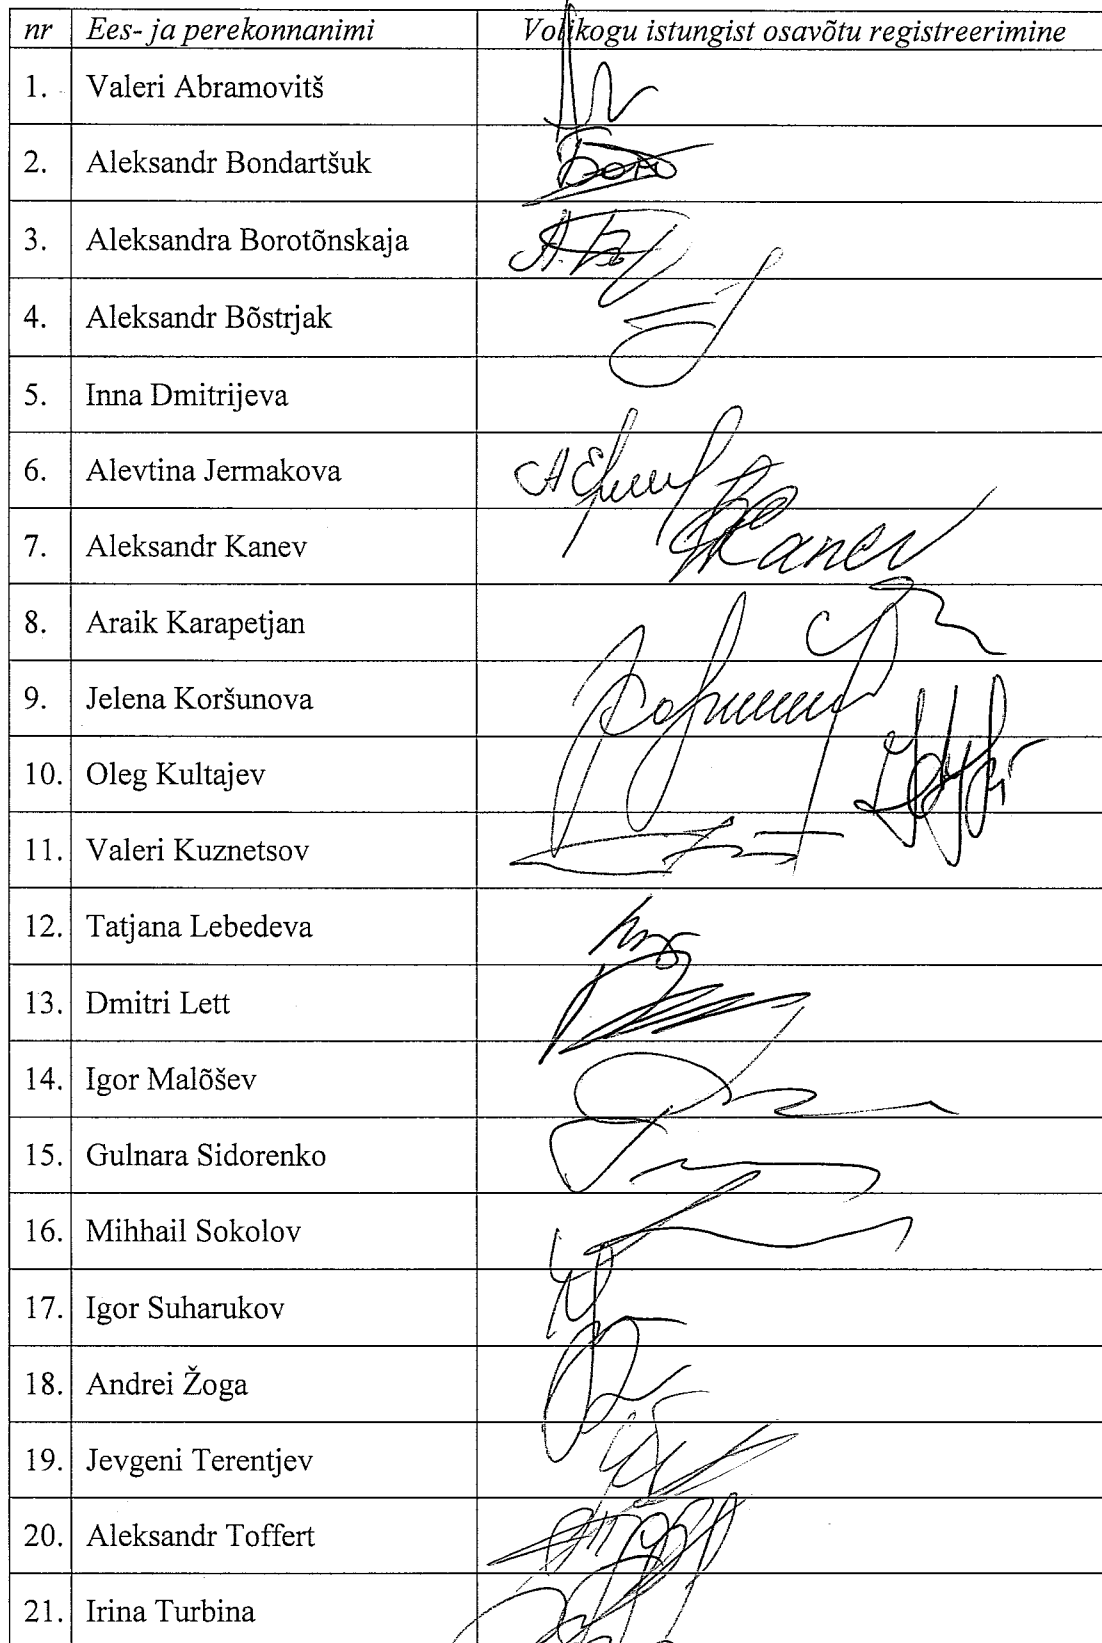 nr Ees- ja perekonnanimi Volikogu istungist osavõtu registreerimine
1. Valeri Abramovitš
2. Aleksandr Bondartšuk
3. Aleksandra Borotõnskaja
4. Aleksandr Bõstrjak
5. Inna Dmitrijeva
6. Alevtina Jermakova
7. Aleksandr Kanev Kanev
8. Araik Karapetjan
9. Jelena Koršunova
10. Oleg Kultajev
11. Valeri Kuznetsov
12. Tatjana Lebedeva
13. Dmitri Lett
14. Igor Malõšev
15. Gulnara Sidorenko
16. Mihhail Sokolov
17. Igor Suharukov
18. Andrei Žoga
19. Jevgeni Terentjev
20. Aleksandr Toffert
21. Irina Turbina